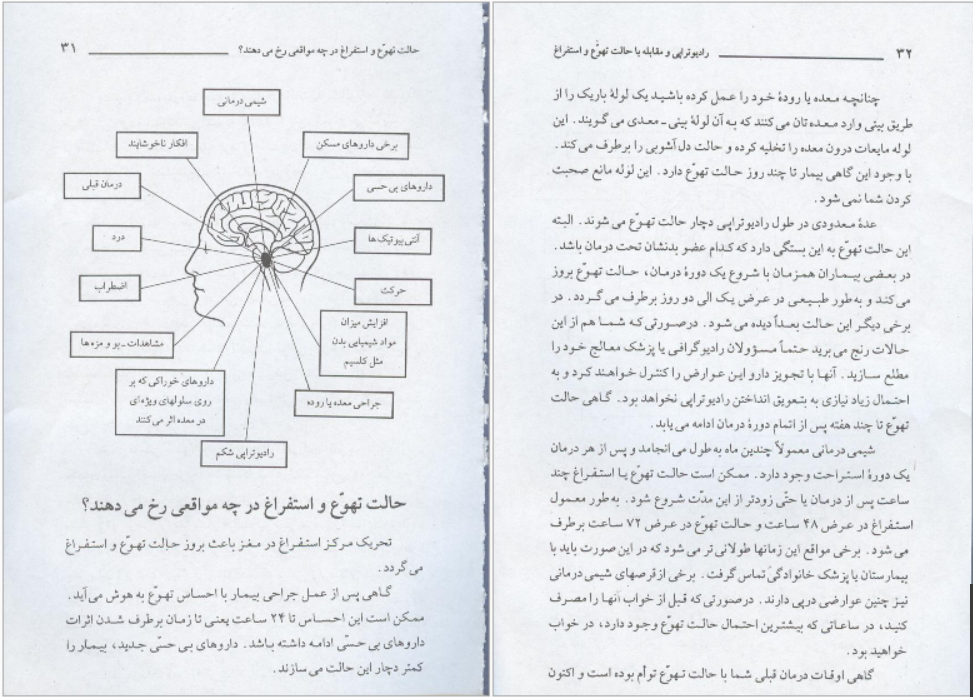 ۳۱ حالت تهوّع و استفراغ در چه مواقعی رخ می دهند؟
شیمی درمانی
برخی داروهای مسکن
افکار ناخوشایند
داروهای بی حسی
درمان قبلی
آنتی بیوتیک ها
درد
حرکت
اضطراب
افزایش میزان
مواد شیمیایی بدن
مثل کلسیم
مشاهدات ـ بو و مزه ها
جراحی معده یا روده
داروهای خوراکی که بر
روی سلولهای ویژه ای
در معده اثر می کنند
رادیوتراپی شکم
حالت تهوّع و استفراغ در چه مواقعی رخ می دهند؟
تحریک مرکز استفراغ در مغز باعث بروز حالت تهوّع و استفراغ
می گردد.
گاهی پس از عمل جراحی بیمار با احساس تهوّع به هوش می آید.
ممکن است این احساس تا ۲۴ ساعت یعنی تا زمان برطرف شدن اثرات
داروهای بی حسّی ادامه داشته باشد. داروهای بی حسّی جدید، بیمار را
کمتر دچار این حالت می سازند.
۳۲ رادیوتراپی و مقابله با حالت تهوّع و استفراغ
چنانچه معده یا رودهٔ خود را عمل کرده باشید یک لولهٔ باریک را از
طریق بینی وارد معده تان می کنند که به آن لولهٔ بینی ـ معدی می گویند. این
لوله مایعات درون معده را تخلیه کرده و حالت دل آشوبی را برطرف می کند.
با وجود این گاهی بیمار تا چند روز حالت تهوّع دارد. این لوله مانع صحبت
کردن شما نمی شود.
عدهٔ معدودی در طول رادیوتراپی دچار حالت تهوّع می شوند. البته
این حالت تهوّع به این بستگی دارد که کدام عضو بدنشان تحت درمان باشد.
در بعضی بیماران همزمان با شروع یک دورهٔ درمان، حالت تهوّع بروز
می کند و به طور طبیعی در عرض یک الی دو روز برطرف می گردد. در
برخی دیگر این حالت بعداً دیده می شود. درصورتی که شما هم از این
حالات رنج می برید حتماً مسؤولان رادیوگرافی یا پزشک معالج خود را
مطلع سازید. آنها با تجویز دارو این عوارض را کنترل خواهند کرد و به
احتمال زیاد نیازی به بتعویق انداختن رادیوتراپی نخواهد بود. گاهی حالت
تهوّع تا چند هفته پس از اتمام دورهٔ درمان ادامه می یابد.
شیمی درمانی معمولاً چندین ماه به طول می انجامد و پس از هر درمان
یک دورهٔ استراحت وجود دارد. ممکن است حالت تهوّع یا استفراغ چند
ساعت پس از درمان یا حتّی زودتر از این مدّت شروع شود. به طور معمول
استفراغ در عرض ۴۸ ساعت و حالت تهوّع در عرض ۷۲ ساعت برطرف
می شود. برخی مواقع این زمانها طولانی تر می شود که در این صورت باید با
بیمارستان یا پزشک خانوادگی تماس گرفت. برخی از قرصهای شیمی درمانی
نیز چنین عوارضی درپی دارند. درصورتی که قبل از خواب آنها را مصرف
کنید، در ساعاتی که بیشترین احتمال حالت تهوّع وجود دارد، در خواب
خواهید بود.
گاهی اوقات درمان قبلی شما با حالت تهوّع توأم بوده است و اکنون